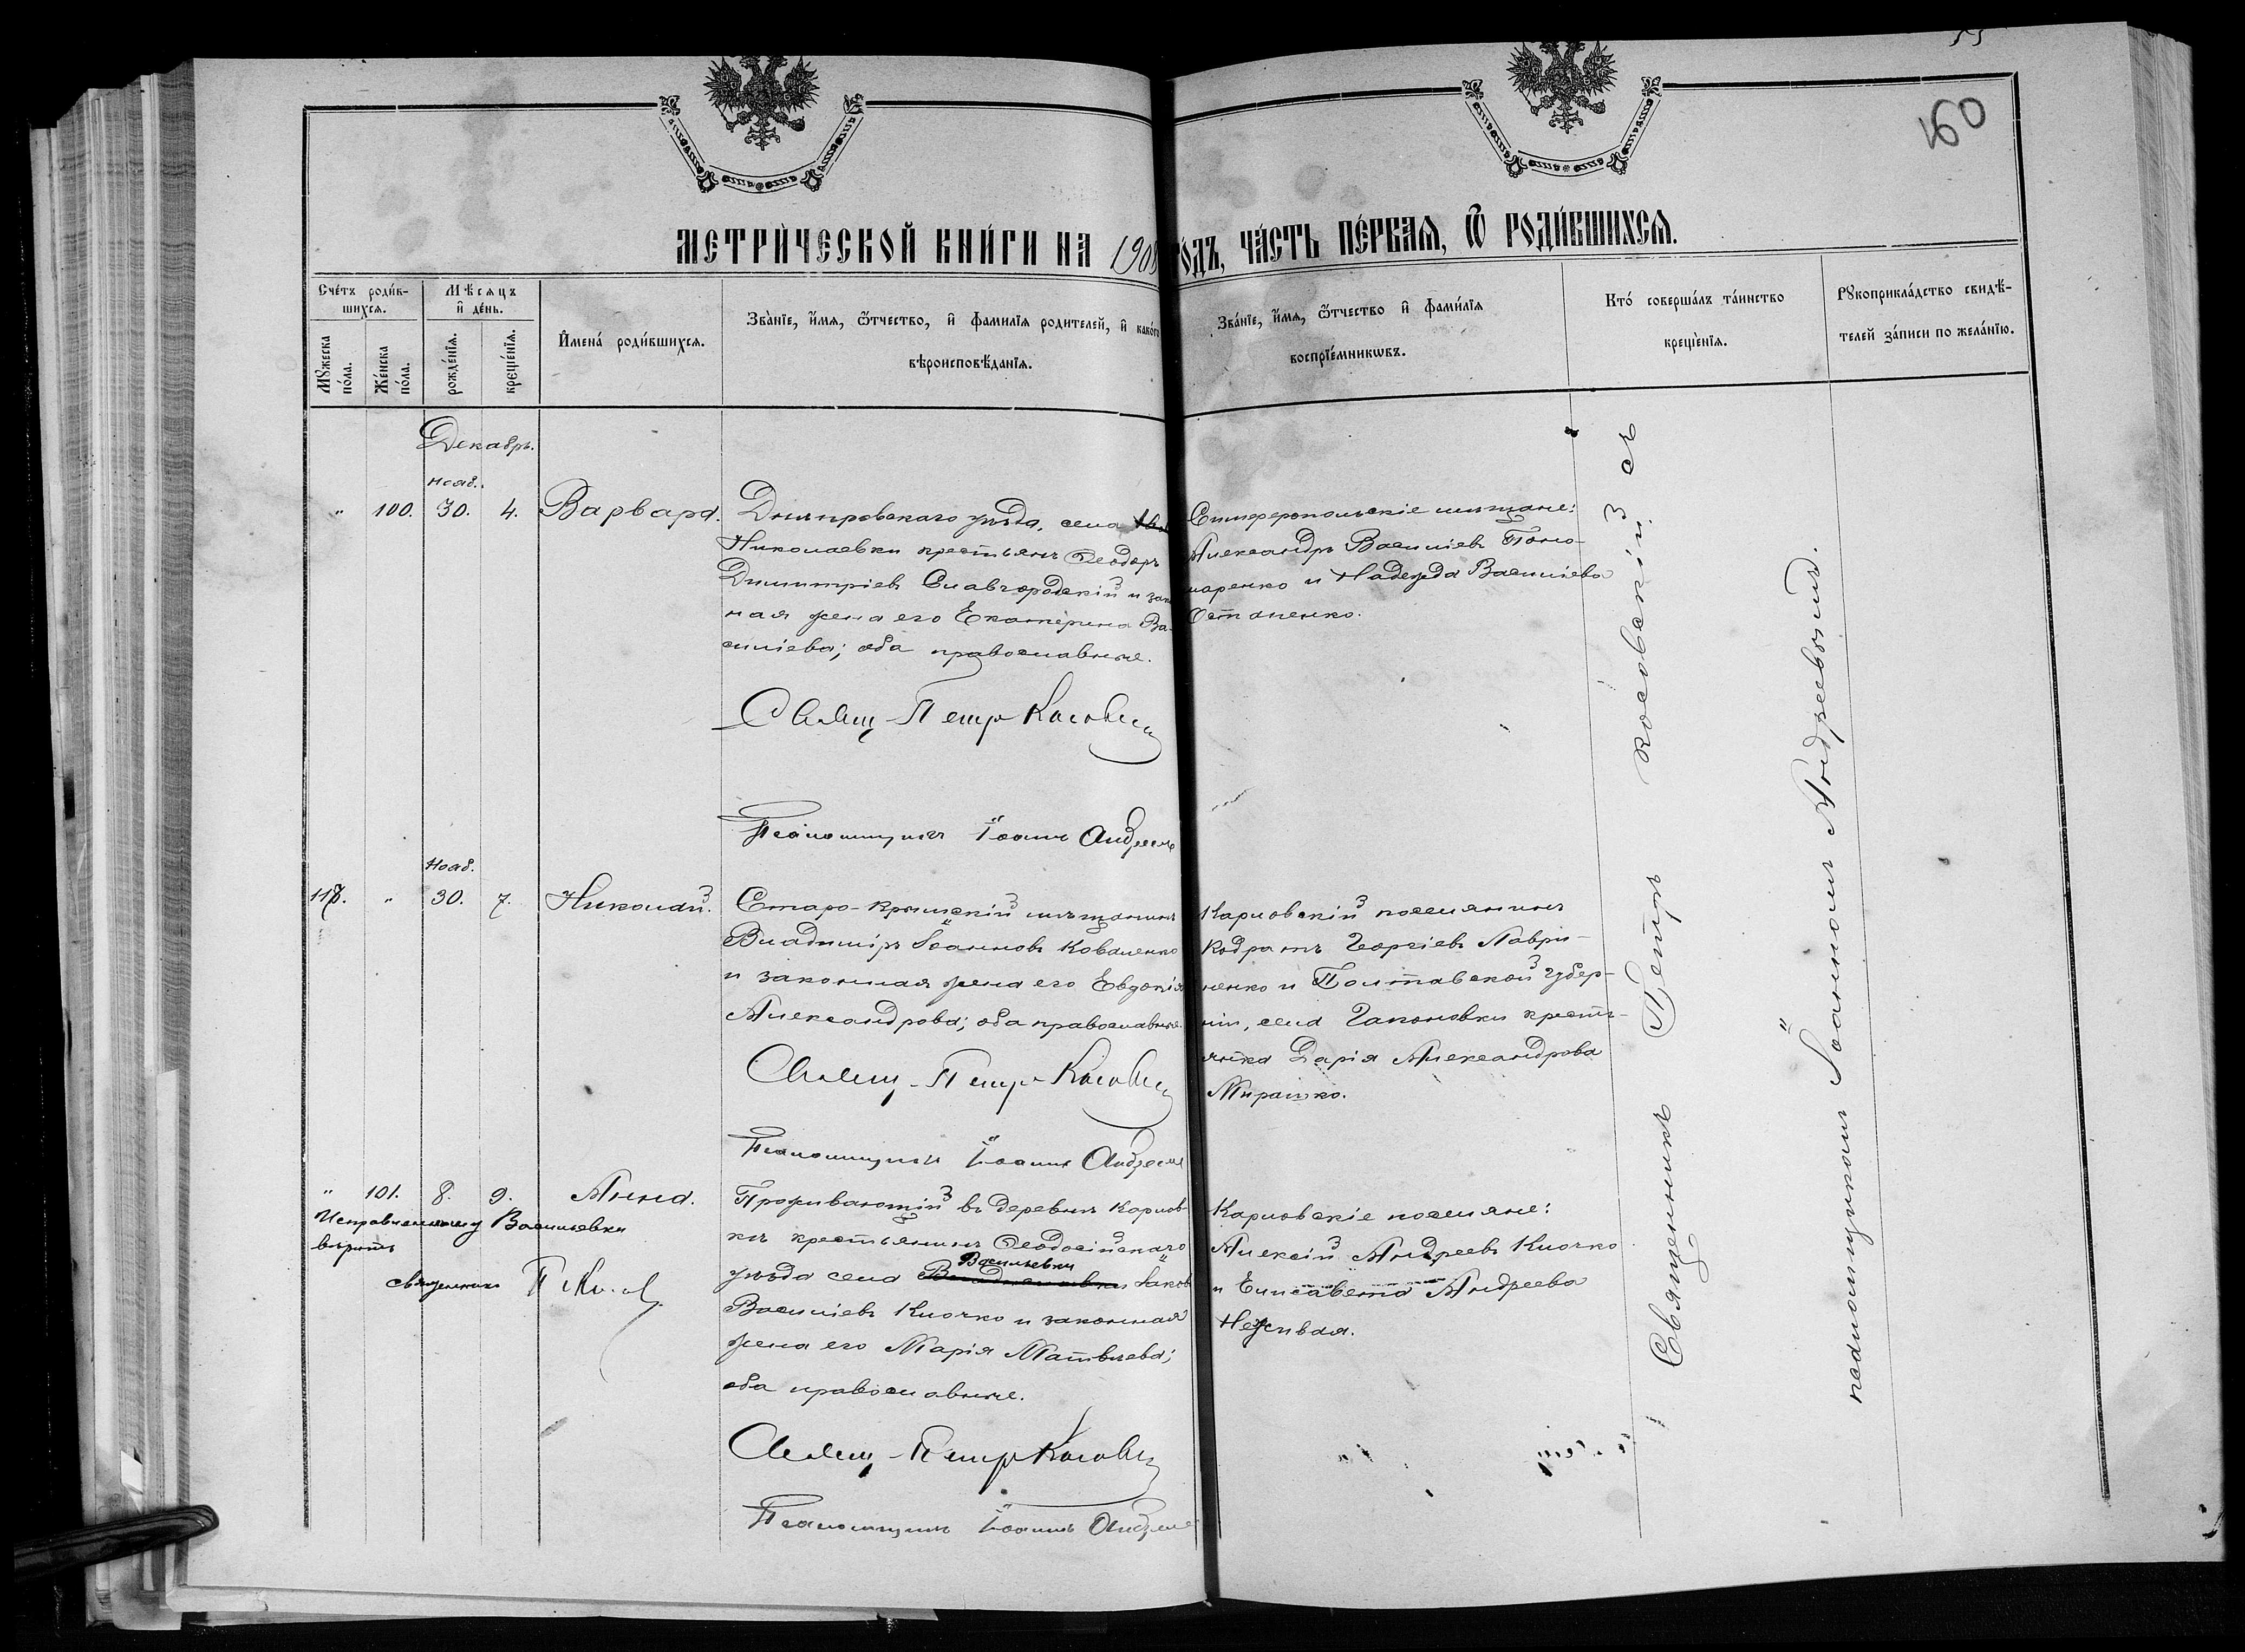 160
МЕТРИ́ЧЕСКОЙ КНИ́ГИ НА 1908 ГО́ДЪ, ЧА́СТЬ ПЕ́РВАѦ, Ѿ РОДИ́ВШИХСѦ.
Сче́тъ роди́в-
шихсѧ.
Мꙋ́жеска по́ла.
Же́нска по́ла.
Мѣ́сѧцъ
и҆ де́нь.
рожде́нїѧ.
креще́нїѧ.
И҆мена́ роди́вшихсѧ.
Зва́нїе, и҆́мѧ, ѻ҆́тчество, и҆ фами́лїѧ роди́телей, и҆ како́гѡ
вѣроисповѣ́данїѧ.
Зва́нїе, и҆́мѧ, ѻ҆́тчество и҆ фами́лїѧ
воспрїе́мникѡвъ.
Кто́ соверша́лъ та́инство
креще́нїѧ.
Рꙋкоприкла́дство свидѣ́-
телей за́писи по жела́нїю.
Декабрь.
нояб.
" 100. 30. 4. Варвара.
Днѣпровскаго уѣзда, села
Николаевки крестьянъ Ѳеодоръ
Димитріевъ Славгородскій и закон
ная жена его Екатерина Ва-
силіева; оба православные.
Свящ. Петръ Косовскій
Псаломщикъ Іоаннъ Андреевъ
Симферопольскіе мѣщане:
Александръ Василіевъ Поно-
маренко и Надежда Василіева
Остапенко.
Нояб.
118. " 30. 7. Николай.
Старо-Крымскій мѣщанинъ
Владиміръ Іоанновъ Коваленко
и законная жена его Евдокія
Александрова; оба православные.
Свящ. Петръ Косовскій
Псаломщикъ Іоаннъ Андреевъ
Карловскій поселянинъ
Кодратъ Георгіевъ Лаври-
ненко и Полтавской губер-
ніи, села Гапоновки кресть-
янка Дарія Александрова
Мирашко.
" 101. 8. 9. Анна.
Исправленному Васильевки
вѣрить
священникъ П.
Проживающій въ деревнѣ Карлов-
кѣ крестьянинъ Ѳеодосійскаго
Васильевки
уѣзда села Владиславовки Іаковъ
Василіевъ Клочко и законная
жена его Марія Матвѣева;
оба православные.
Свящ. Петръ Косовскій
Псаломщикъ Іоаннъ Андреевъ
Карловскіе поселяне:
Алексій Андреевъ Клочко
и Елисавета Андреева
Неживая.
Священникъ Петръ Косовскій съ
псаломщикомъ Іоанномъ Андреевымъ.